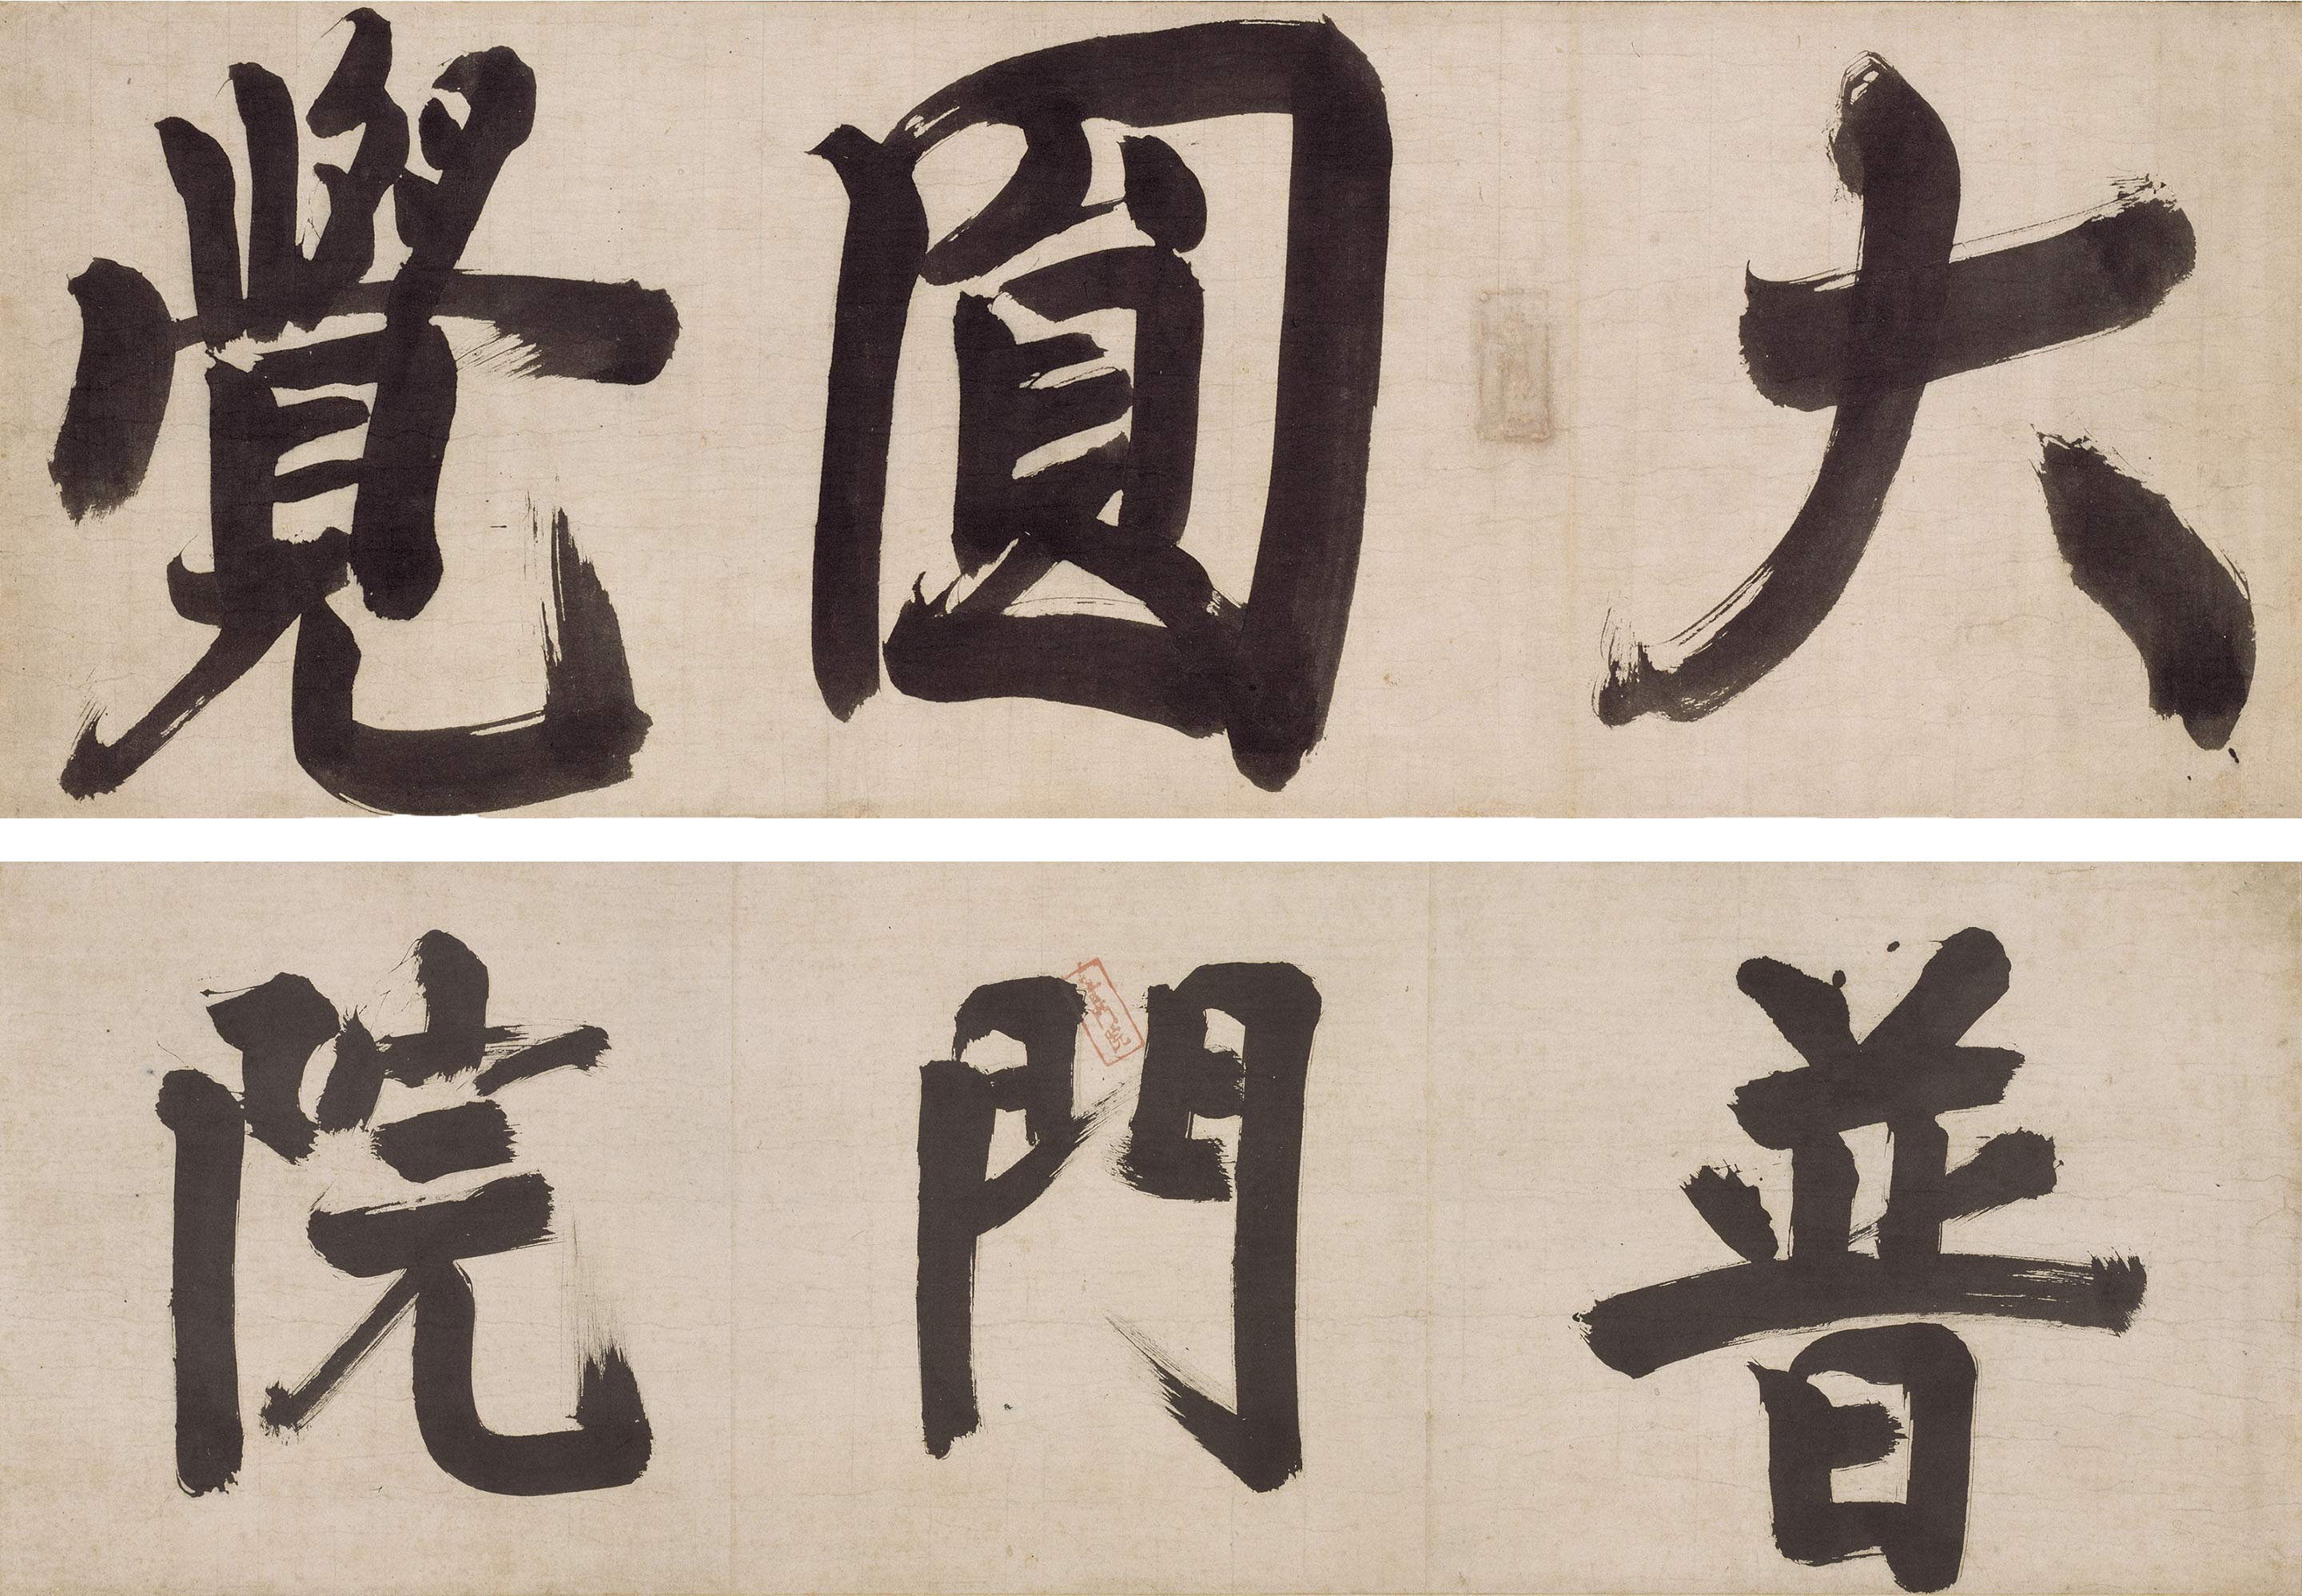 大圓覺
普門院